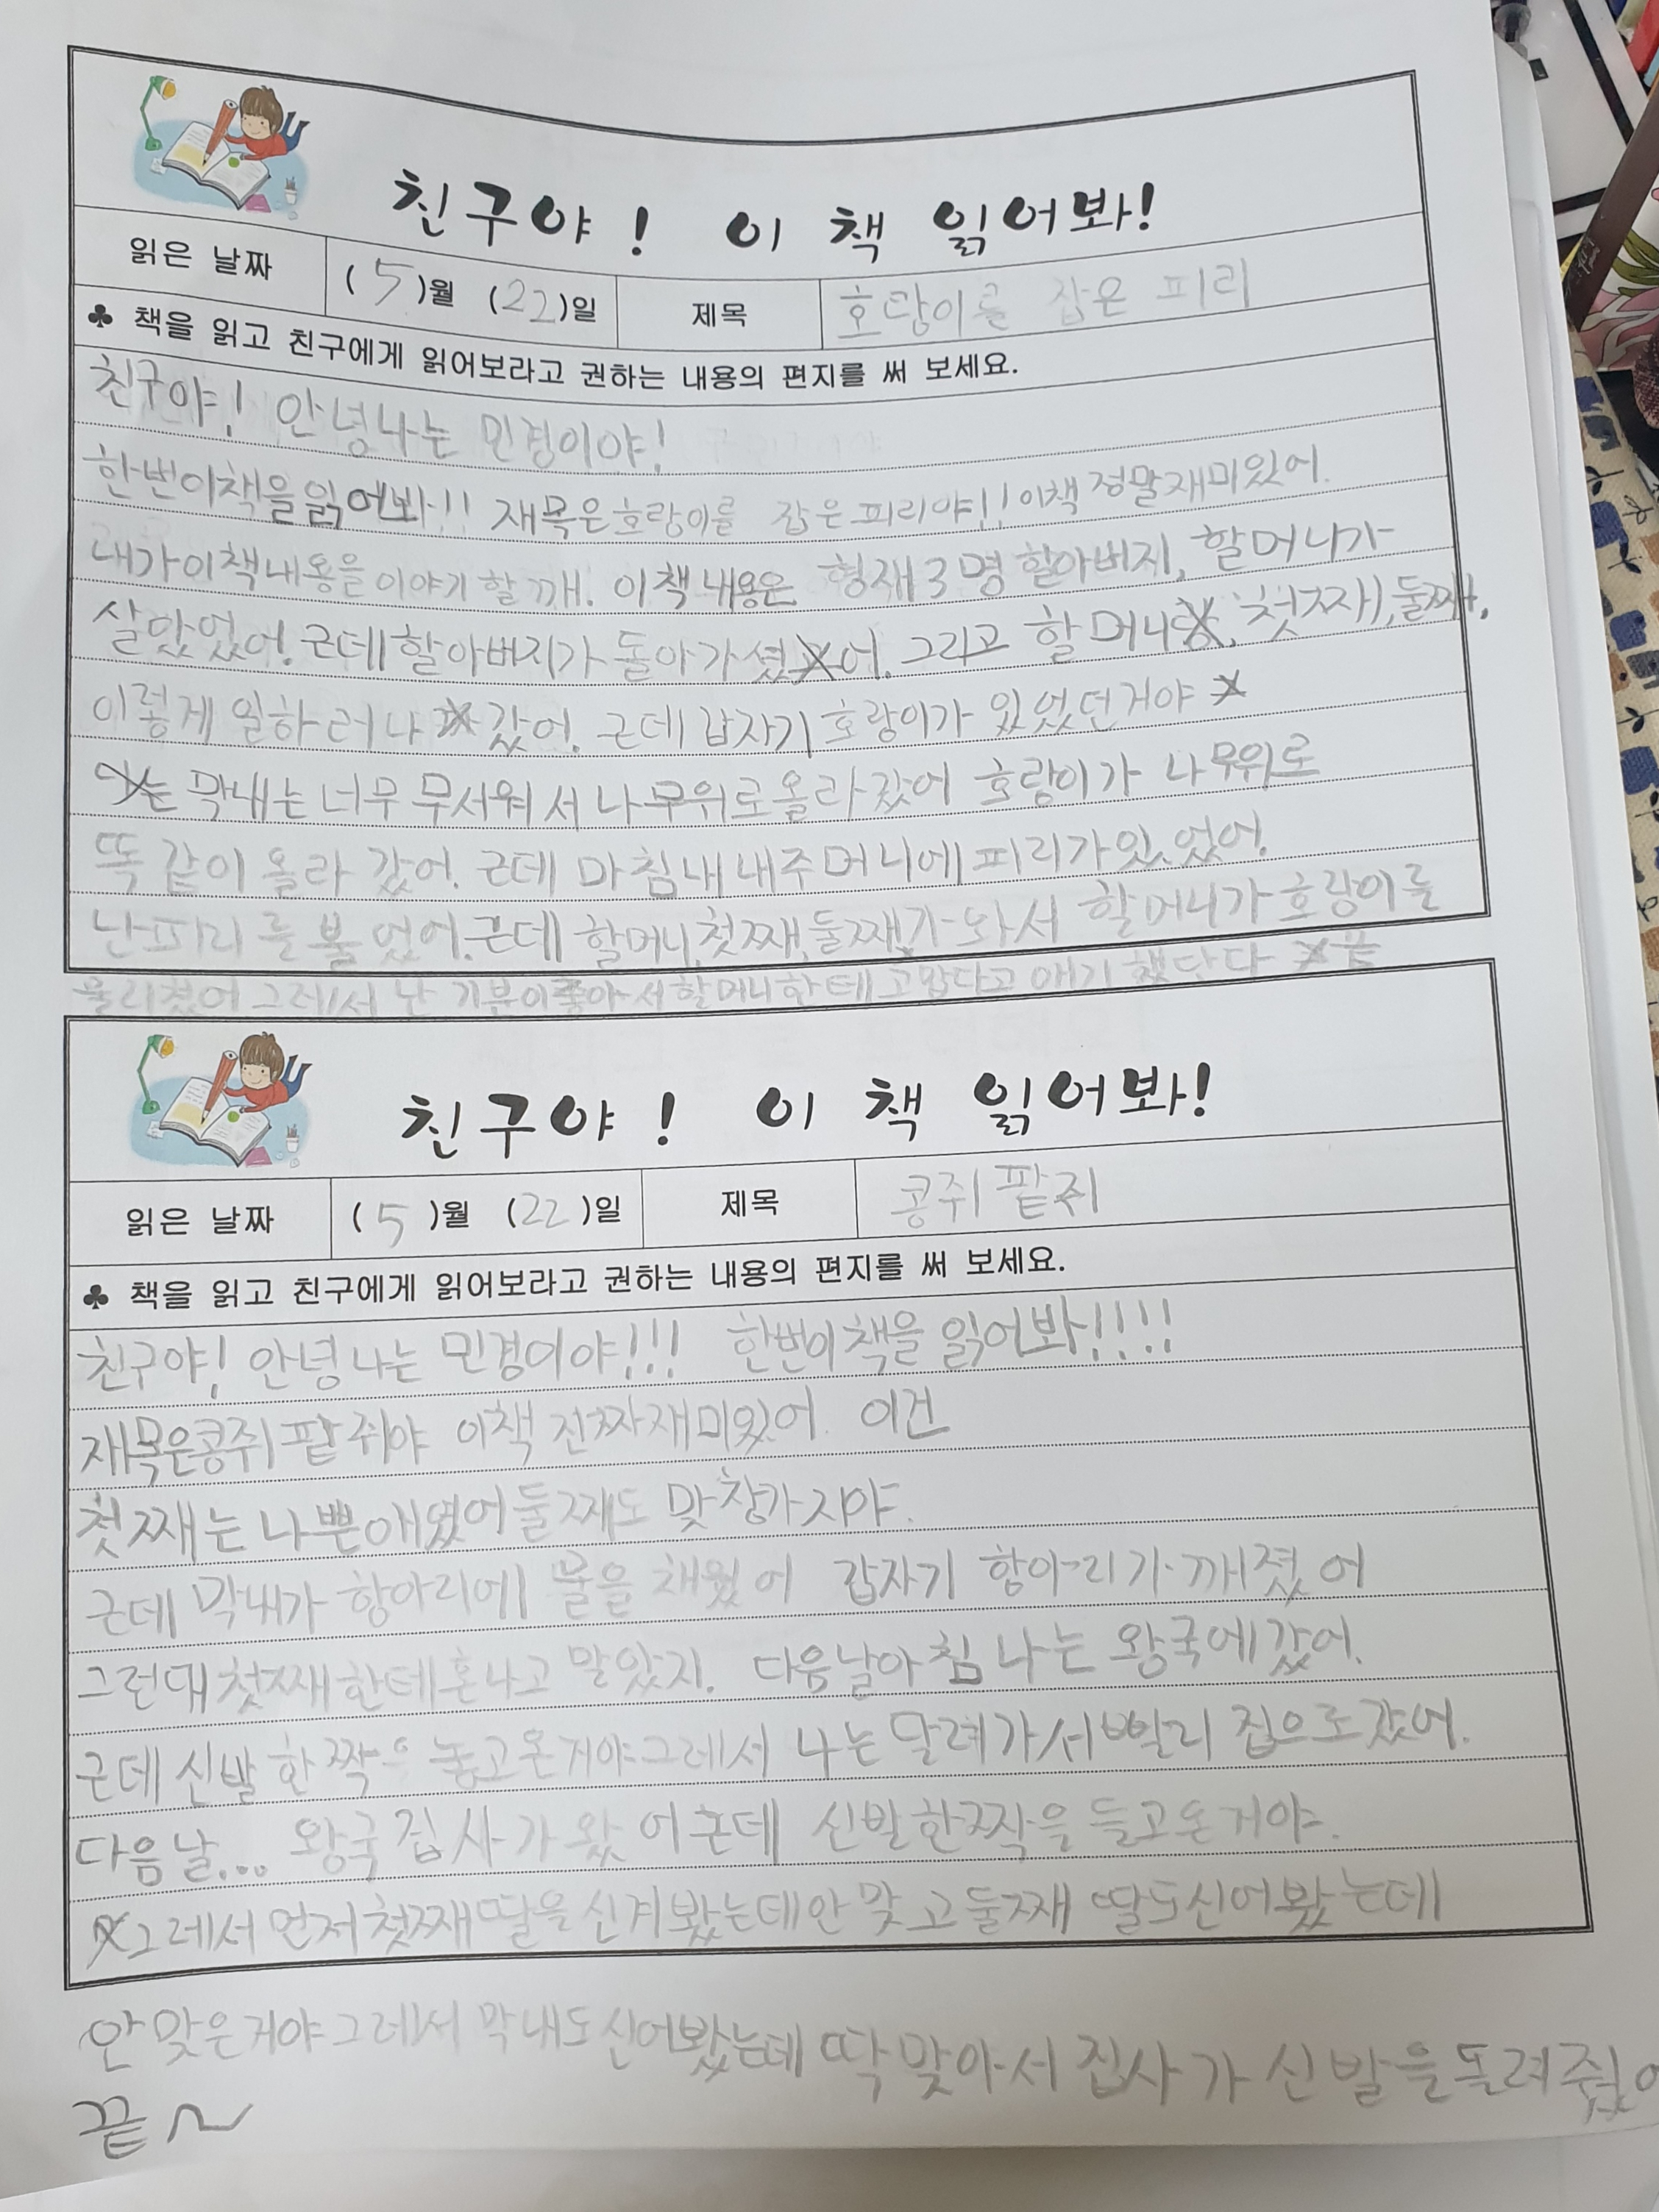 친구야! 이 책 읽어봐!
읽은 날짜 (5)월 (22)일 제목 호랑이를 잡은 피리
♣ 책을 읽고 친구에게 읽어보라고 권하는 내용의 편지를 써 보세요.
친구야! 안녕나는 민경이야!
한번이책을읽어봐!! 재목은호랑이를 잡은피리야!! 이책정말재미있어.
내가이책내용을이야기할깨. 이책내용은 형재3명할아버지, 할머니가
살았었어. 근데할아버지가 돌아가셨어. 그리고 할머니, 첫째, 둘째,
이렇게 일하러나갔어. 근데 갑자기 호랑이가 있었던거야
막내는 너무 무서워서 나무위로올라갔어 호랑이가 나무위로
똑같이 올라 갔어. 근데 마침내 내주머니에피리가있었어.
난피리를 불었어.근데 할머니,첫째,둘째가 와서 할머니가호랑이를
물리쳤어 그레서 난 기분이좋아서할머니한테고맙다고 애기했단다 끝
친구야! 이 책 읽어봐!
읽은 날짜 (5)월 (22)일 제목 콩쥐팥쥐
♣ 책을 읽고 친구에게 읽어보라고 권하는 내용의 편지를 써 보세요.
친구야! 안녕나는 민경이야!!! 한번이책을 읽어봐!!!!
재목은콩쥐팥쥐야 이책 진짜재미있어. 이건
첫째는나쁜애였어둘째도 맞창가지야.
근데 막내가 항아리에 물을 채웠어 갑자기 항아리가 깨졌어
그런대첫째한테혼나고 말았지. 다음날아침나는 왕국에갔어.
근데신발한짝을 놓고온거야그레서 나는 달려가서빨리 집으로갔어.
다음날... 왕국 집사가왔어근데 신발한짝을 들고온거야.
그레서먼저첫째딸을신겨봤는데안맞고둘째 딸도신어봤는데
안맞은거야그레서 막내도신어봤는데 딱맞아서집사가 신발을돌려줬어
끝~